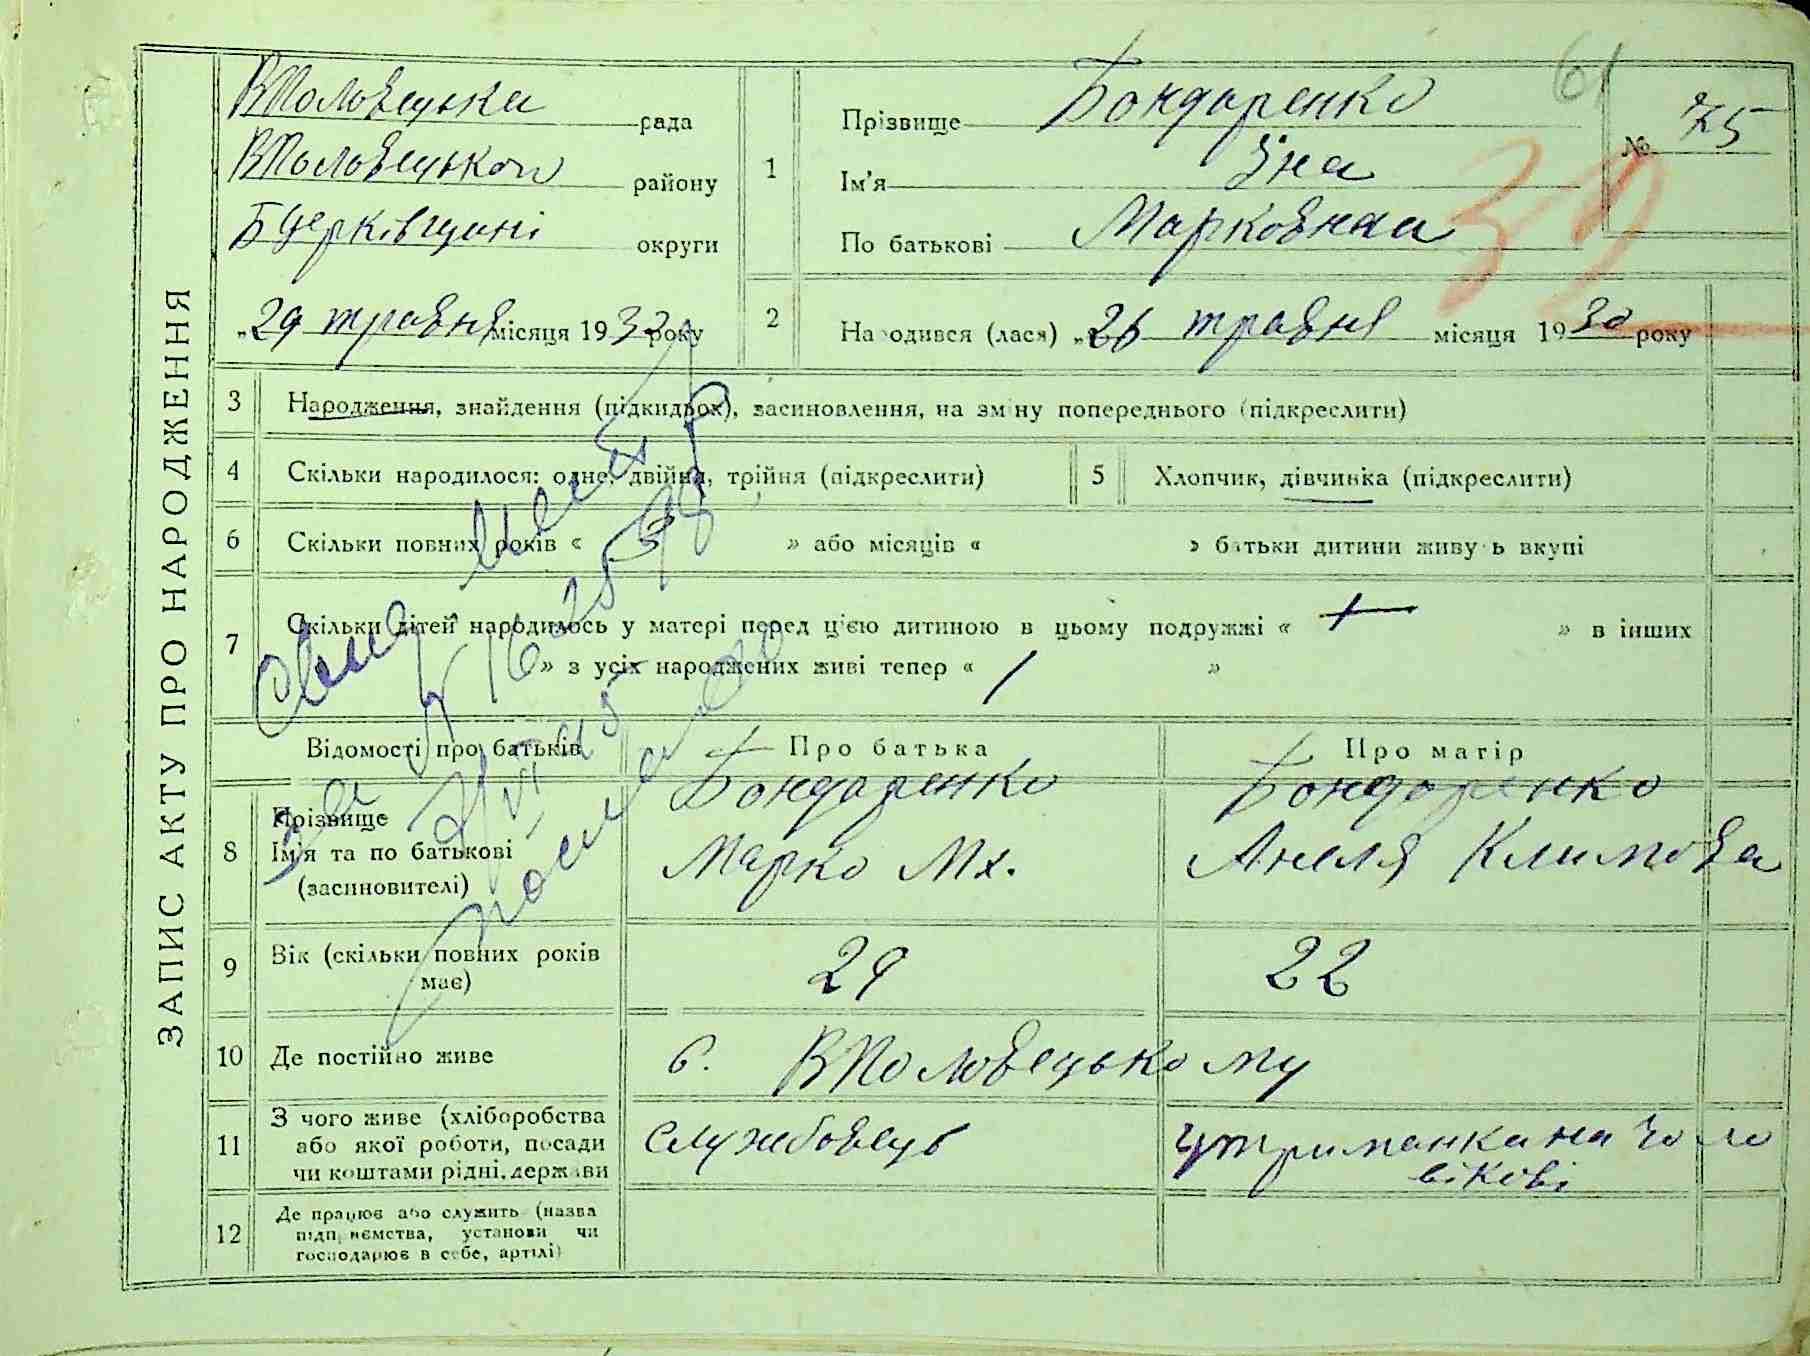 ЗАПИС АКТУ ПРО НАРОДЖЕННЯ
61
ВПоловецька рада
ВПоловецького району
БЦерківщині округи
„29 травня місяця 193 року
1
Прізвище Бондаренко
Ім'я Їна
По батькові Марковна
№ 75
32
2 Народився (лася) „26 травня місяця 1930 року
3 Народження, знайдення (підкидьок), засиновлення, на зміну попереднього (підкреслити)
4 Скільки народилося: одне, двійня, трійня (підкреслити)
5 Хлопчик, дівчинка (підкреслити)
6 Скільки повних років « 3 » або місяців « » батьки дитини живуть вкупі
7 Скільки дітей народилось у матері перед цією дитиною в цьому подружжі « » в інших
» з усіх народжених живі тепер « 1 »
Відомості про батьків Про батька Про матір
8 Прізвище Бондаренко Бондаренко
Ім'я та по батькові Марко Мх. Анеля Климова
(засиновителі)
9 Вік (скільки повних років має) 29 22
10 Де постійно живе в. ВПоловецькому
11 З чого живе (хліборобства
або якої роботи, посади
чи коштами рідні, держави
службовець
утриманка на чоло
вікові
12 Де працює або служить (назва
підприємства, установи чи
господарює в себе, артілі)